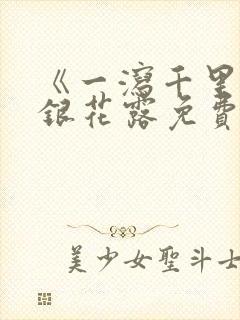 《一瀉千里
銀花露免費
美少女聖斗士